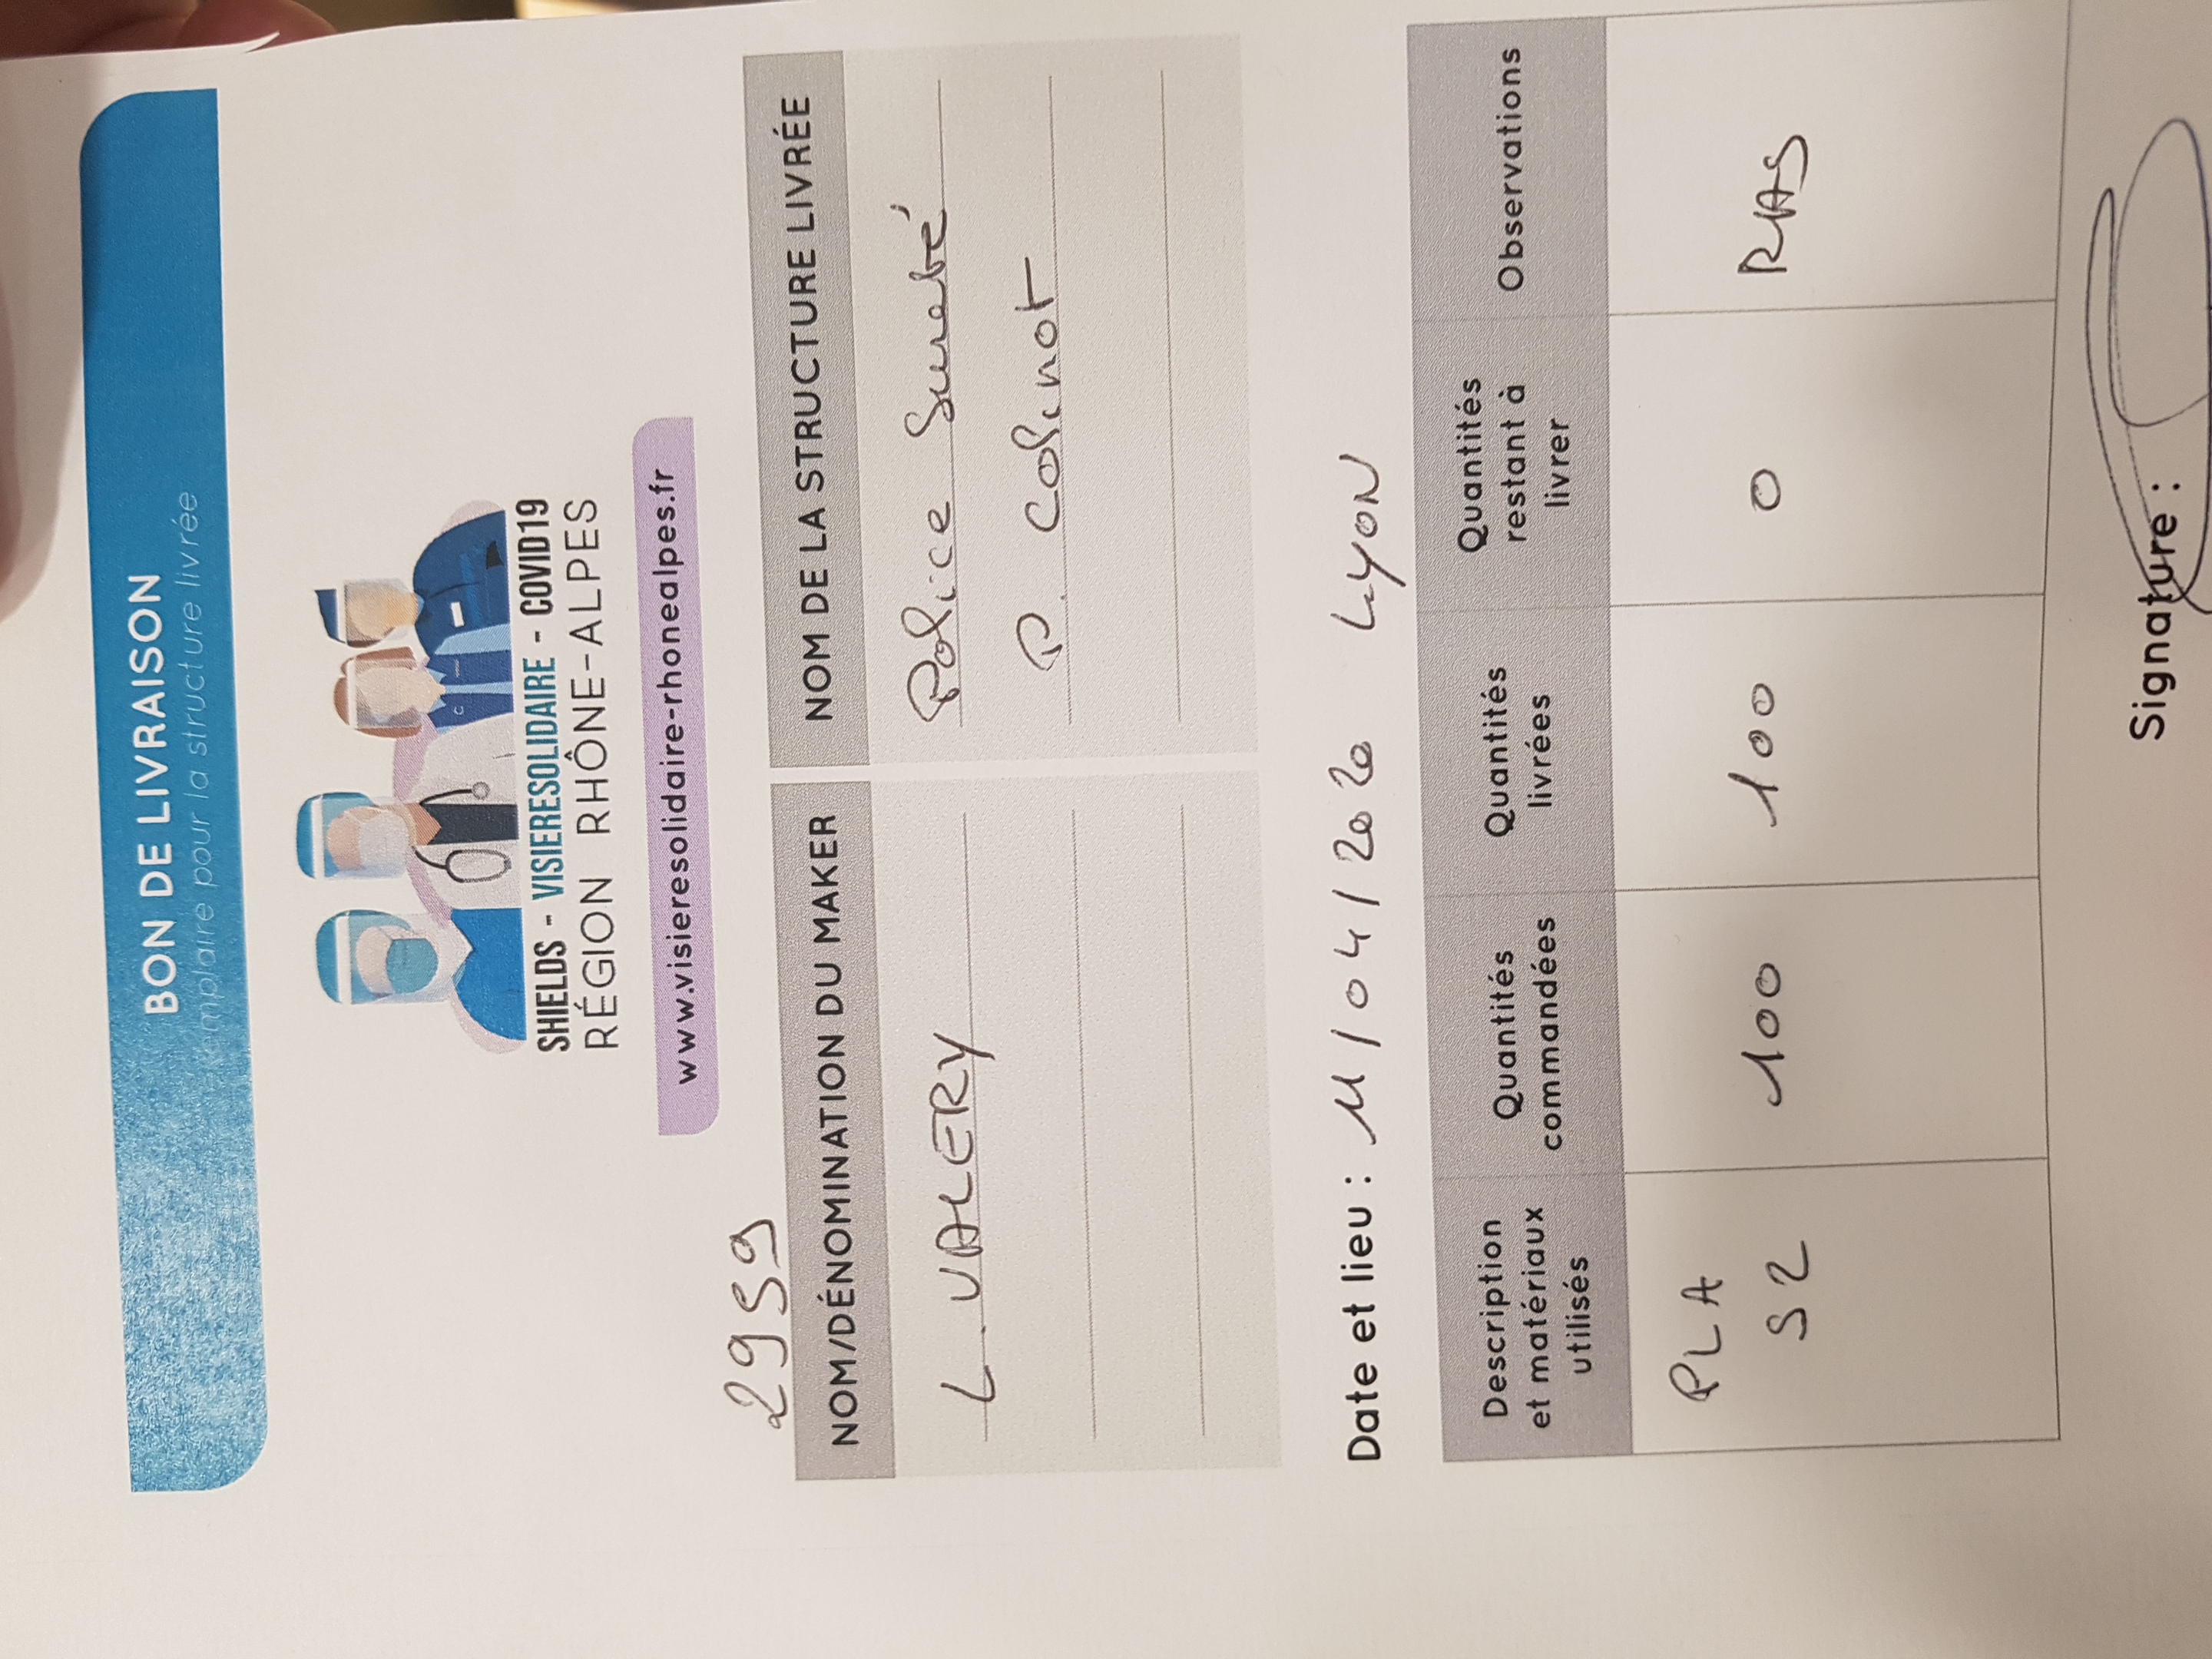 BON DE LIVRAISON
exemplaire pour la structure livrée
SHIELDS - VISIERESOLIDAIRE - COVID19
RÉGION RHÔNE-ALPES
www.visieresolidaire-rhonealpes.fr
2959
NOM/DÉNOMINATION DU MAKER
L. VALERY
NOM DE LA STRUCTURE LIVRÉE
Police Sureté
P. Colinot
Date et lieu : 11/04/2020 LYON
Description
et matériaux
utilisés
Quantités
commandées
Quantités
livrées
Quantités
restant à
livrer
Observations
PLA
S2
100
100
0
RAS
Signature :